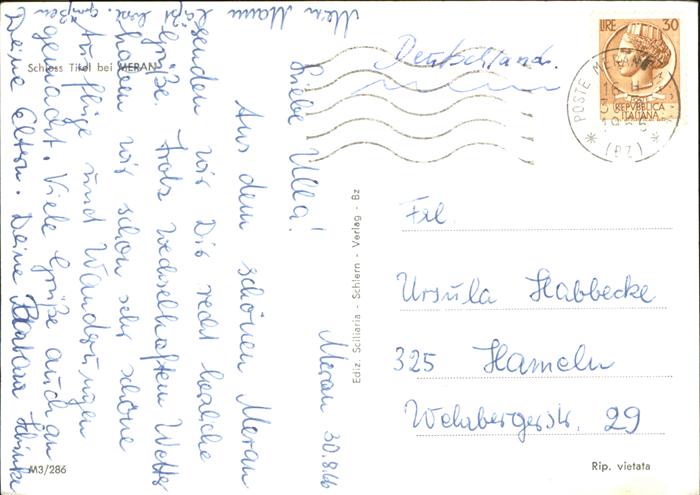 Schloss Tirol bei MERAN
Meran 30.8.66
Liebe Ulla!
Aus dem schönen Meran
senden wir Dir recht herzliche
Grüße. Trotz wechselhaften Wetters
haben wir schon sehr schöne
Ausflüge und Wanderungen
gemacht. Viele Grüße auch an
Deine Eltern. Deine Barbara
Mein Mann
läßt
grüßen
M3/286
Ediz. Sciliaria - Schlern - Verlag - Bz
Deutschland.
LIRE 30
REPVBBLICA
ITALIANA
POSTE MERANO
(BZ)
Frl.
Ursula Habbecke
325 Hameln
29
Rip. vietata